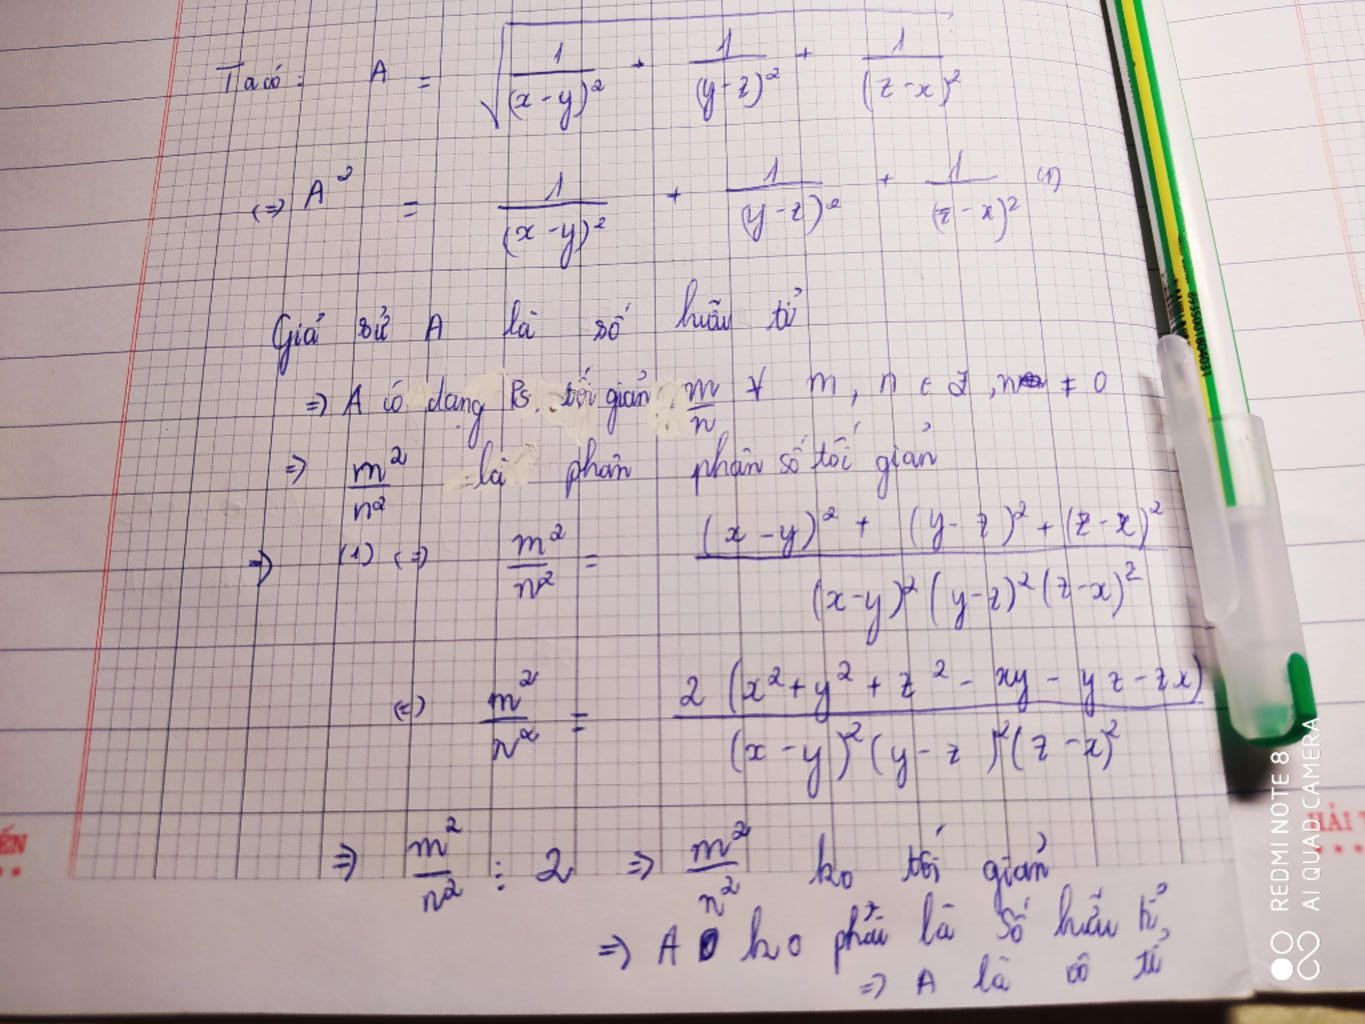 Ta có: A = √(1/(x-y)² + 1/(y-z)² + 1/(z-x)²)
(=) A² = 1/(x-y)² + 1/(y-z)² + 1/(z-x)² (1)
Giả sử A là số hữu tỉ
=> A có dạng Ps. tối giản m/n ∀ m, n ∈ Z, n ≠ 0
=> m²/n² là phân phân số tối giản
=> (1) (=) m²/n² = ((x-y)² + (y-z)² + (z-x)²)/((x-y)² (y-z)² (z-x)²)
(=) m²/n² = 2 (x² + y² + z² - xy - yz - zx)/((x-y)² (y-z)² (z-x)²)
=> m²/n² ⋮ 2 => m²/n² ko tối giản
=> A ko phải là số hữu tỉ,
=> A là vô tỉ
ẾN
HẢI T
6935001804031
REDMI NOTE 8
AI QUAD CAMERA